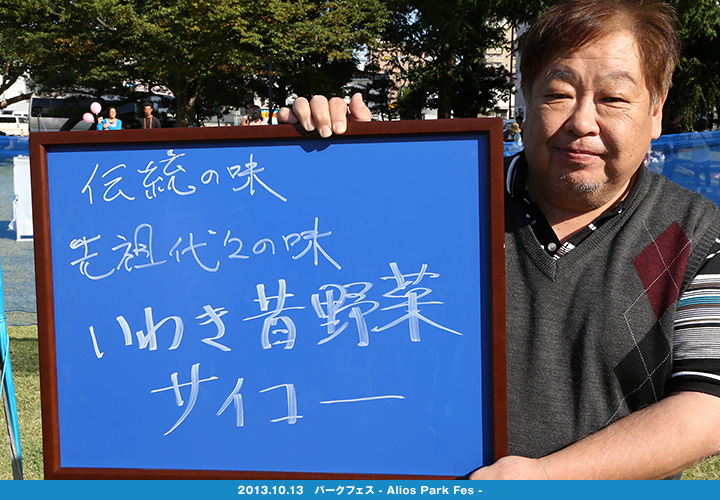 伝統の味
先祖代々の味
いわき昔野菜
サイコー
2013.10.13 パークフェス - Alios Park Fes -